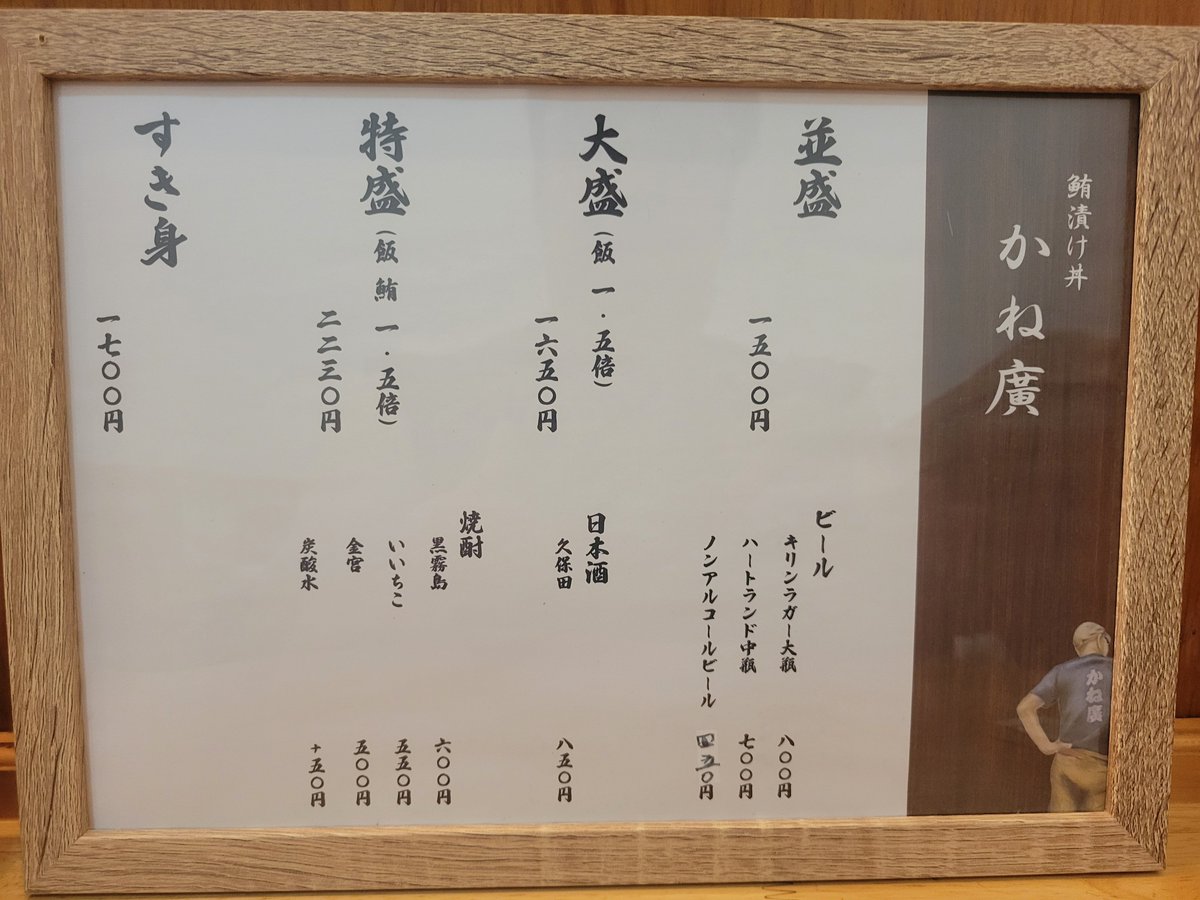 鮪漬け丼
かね廣
並盛
一五〇〇円
大盛(飯 一・五倍)
一六五〇円
特盛(飯 鮪 一・五倍)
二二三〇円
すき身
一七〇〇円
ビール
キリンラガー大瓶 八〇〇円
ハートランド中瓶 七〇〇円
ノンアルコールビール 四五〇円
日本酒
久保田 八五〇円
焼酎
黒霧島 六〇〇円
いいちこ 五五〇円
金宮 五〇〇円
炭酸水 +五〇円
かね廣